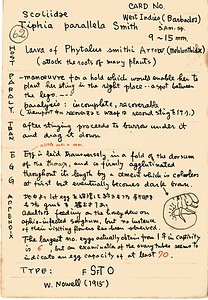 CARD NO.
Scoliidae
West Indies (Barbados)
Tiphia parallela Smith
5 AM. sp.
62
9 ~ 15 mm
HOST
Larva of Phytalus smithi Arrow (Melolonthidae)
(attack the roots of many plants)
PARALY.
-manoeuvre for a hold which would enable her to
plant her sting in the right place -- a spot between
the legs. --
paralysis: incomplete, recoverable
TRAN
after stinging proceeds to burrow under it
and drag it down
EGG
Egg is laid transversely in a fold of the dorsum
of the thorax, and is firmly agglutinated
throughout its length by a cement which is colorless
at first but eventually becomes dark brown.
adults feeding on the honeydew on
aphis-infested sugarcane, but no instance
of their visiting flowers has been observed.
The largest no. eggs actually obtain from 1 ♀ in captivity
is 6, but an examination of the ovary tubes seems to
indicate an egg capacity of at least 70.
TYPE: FSTO
W. Nowell (1915)